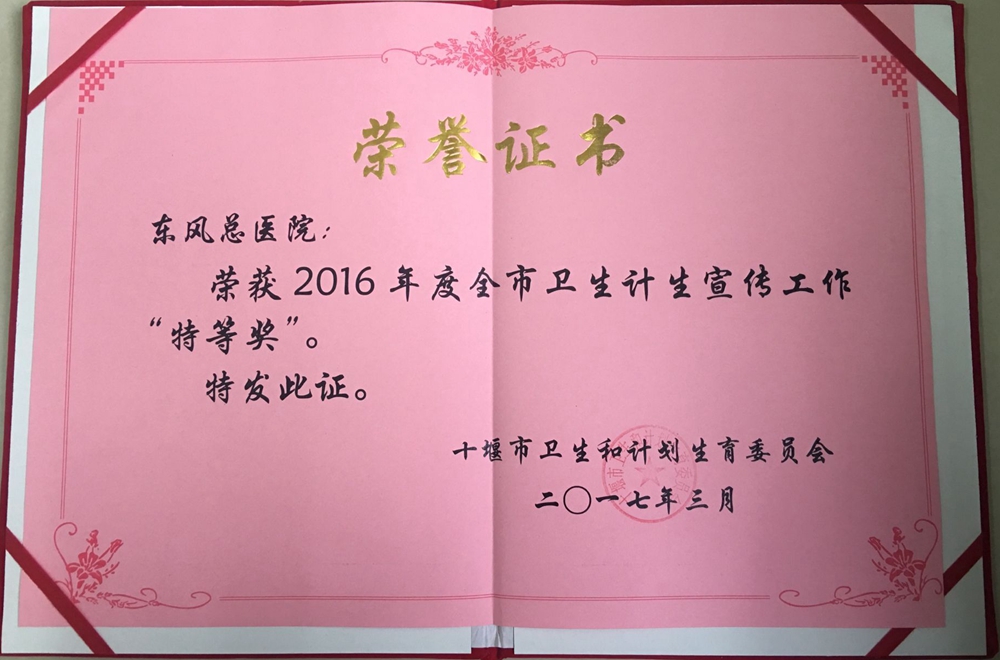 荣誉证书
东风总医院：
荣获2016年度全市卫生计生宣传工作
“特等奖”。
特发此证。
十堰市卫生和计划生育委员会
二〇一七年三月